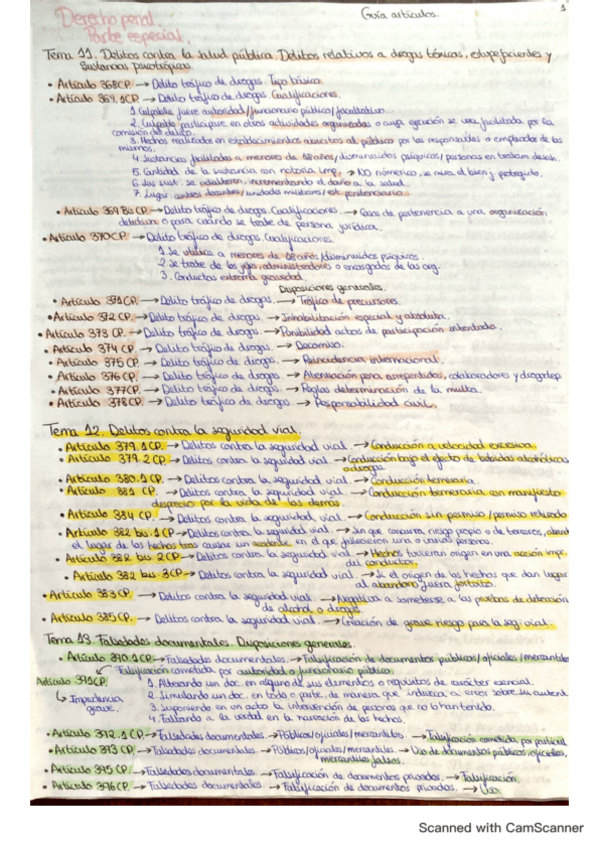 Derecho penal.
Guía artículos.
1
Parte especial.
Tema 11. Delitos contra la salud pública. Delitos relativos a drogas tóxicas, estupefacientes y
Sustancias psicotrópicas.
• Artículo 368CP. → Delito tráfico de drogas. Tipo básico.
• Artículo 369.1CP → Delito tráfico de drogas. Cualificaciones.
1. Culpable fuere autoridad/funcionario público/facultativo...
2. Culpable participare en otras actividades organizadas o cuya ejecución se vea facilitada por la
comisión del delito.
3. Hechos realizados en establecimientos abiertos al público por los responsables o empleados de los
mismos.
4. Sustancias facilitadas a menores de 18 años/disminuidos psíquicos/personas en tratam. desinh.
5. Cantidad de la sustancia con notoria imp. → NO númerico, se mira el bien y protegido.
6. Las sust. se adulteren, incrementando el daño a la salud.
7. Lugar centros docentes/unidades militares/est. penitenciario.
• Artículo 369 Bis CP → Delito tráfico de drogas. Cualificaciones → Caso de pertenencia a una organización
delictiva o para cuando se trate de persona jurídica.
• Artículo 370CP. → Delito tráfico de drogas. Cualificaciones.
1. Se utilice a menores de 18 años/disminuidos psíquicos.
2. Se trate de los jefes, administradores o encargados de las org.
3. Conductas extrema gravedad.
Disposiciones generales.
• Artículo 371CP. → Delito tráfico de drogas. → Tráfico de precursores.
• Artículo 372 CP. → Delito tráfico de drogas. → Inhabilitación especial y absoluta.
• Artículo 373 CP. → Delito tráfico de drogas. → Punibilidad actos de participación intentada.
• Artículo 374 CP. → Delito tráfico de drogas → Decomiso.
• Artículo 375 CP. → Delito tráfico de drogas. → Reincidencia internacional.
• Artículo 376 CP. → Delito tráfico de drogas. → Atenuación pena arrepentidos, colaboradores y drogodep
• Artículo 377CP. → Delito tráfico de drogas. → Reglas determinación de la multa.
• Artículo 378CP. → Delito tráfico de drogas → Responsabilidad civil.
Tema 12. Delitos contra la seguridad vial.
• Artículo 379.1CP. → Delitos contra la seguridad vial. → Conducción a velocidad excesiva.
• Artículo 379.2 CP. → Delitos contra la seguridad vial. → Conducción bajo el efecto de bebidas alcohólicas
o drogas.
• Artículo 380.1 CP. → Delitos contra la seguridad vial. → Conducción temeraria.
• Artículo 381 CP. → Delitos contra la seguridad vial. → Conducción temeraria con manifiesto
desprecio por la vida de los demás
• Artículo 384 CP. → Delitos contra la seguridad vial. → Conducción sin permiso/permiso retirado
• Artículo 382 bis.1 CP → Delitos contra la seguridad vial → Sin que concurra riesgo propio o de terceros,
el lugar de los hechos tras causar un accidente en el que fallecieran una o varias personas.
• Artículo 382 bis 2CP → Delitos contra la seguridad vial. → Hechos tuvieran origen en una acción impr.
del conductor.
• Artículo 382 bis 3CP → Delitos contra la seguridad vial → Si el origen de los hechos que dan lugar
al abandono fuera fortuito.
• Artículo 383CP. → Delitos contra la seguridad vial. → Negativa a someterse a las pruebas de detección
de alcohol o drogas.
• Artículo 385CP. → Delitos contra la seguridad vial. → Creación de grave riesgo para la seg. vial.
Tema 13. Falsedades documentales. Disposiciones generales.
• Artículo 390.1CP. → Falsedades documentales. → Falsificación de documentos públicos/oficiales/mercantiles
Falsificación cometida por autoridad o funcionario público.
Artículo 391CP.
↳ Imprudencia
grave.
1. Alterando un doc. en alguno de sus elementos o requisitos de carácter esencial.
2. Simulando un doc. en todo o parte, de manera que induzca a error sobre su autent.
3. Suponiendo en un acto la intervención de personas que no la han tenido.
4. Faltando a la verdad en la narración de los hechos.
• Artículo 392.1 CP. → Falsedades documentales. → Públicos/oficiales/mercantiles → Falsificación cometida por particul
• Artículo 393 CP. → Falsedades documentales. → Públicos/oficiales/mercantiles. → Uso de documentos públicos, oficiales,
mercantiles falsos.
• Artículo 395 CP. → Falsedades documentales. → Falsificación de documentos privados. → Falsificación.
• Artículo 396CP. → Falsedades documentales. → Falsificación de documentos privados. → Uso.
Scanned with CamScanner